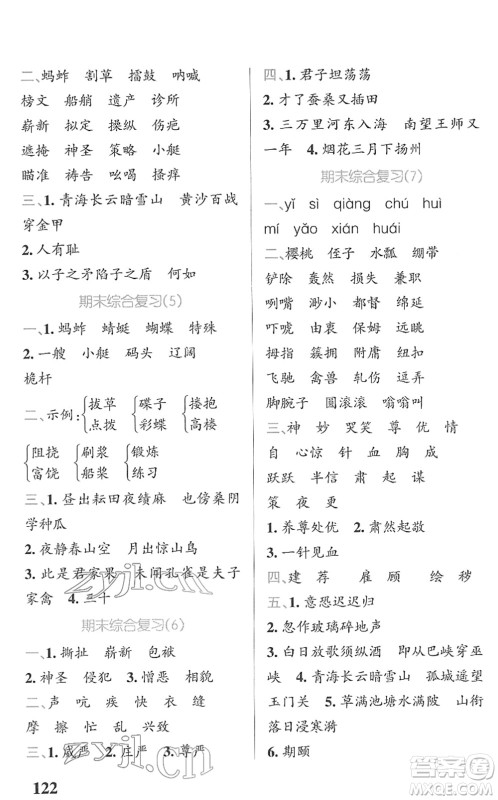 二、蚂蚱 割草 擂鼓 呐喊
榜文 船艄 遗产 诊所
崭新 拟定 操纵 伤疤
遮掩 神圣 策略 小艇
瞄准 祷告 吆喝 搔痒
三、1.青海长云暗雪山 黄沙百战
穿金甲
2.人有耻
3.以子之矛陷子之盾 何如
期末综合复习(5)
一、1.蚂蚱 蜻蜓 蝴蝶 特殊
2.一艘 小艇 码头 辽阔
桅杆
二、示例：{拔草 点拨 {碟子 彩蝶 {搂抱 高楼
{阻挠 富饶 {刷浆 船桨 {锻炼 练习
三、1.昼出耘田夜绩麻 也傍桑阴
学种瓜
2.夜静春山空 月出惊山鸟
3.此是君家果 未闻孔雀是夫子
家禽 4.三十
期末综合复习(6)
一、1.撕扯 崭新 包被
2.神圣 侵犯 憎恶 相貌
二、声 吭 疾 快 衣 缝
摩 擦 忙 乱 兴 致
三、1.威严 2.庄严 3.尊严
122
四、1.君子坦荡荡
2.才了蚕桑又插田
3.三万里河东入海 南望王师又
一年 4.烟花三月下扬州
期末综合复习(7)
一、yǐ sì qiàng chú huì
mí yáo xián huái
二、樱桃 侄子 水瓢 绷带
铲除 轰然 损失 兼职
咧嘴 渺小 都督 绵绳
吓唬 胡闹 保姆 屋檐
拇指 簇拥 附庸 纽扣
飞驰 禽兽 轧伤 逗弄
脚腕子 圆滚滚 嗡嗡叫
三、神 妙 哭笑 尊 优 情
自 心惊 针 血 胸 成
跃跃 半信 肃 起 谋
策 夜 更
1.养尊处优 2.肃然起敬
3.一针见血
四、建 荐 雇 顾 绘 秽
五、1.意恐迟迟归
2.忽作玻璃碎地声
3.白日放歌须纵酒 即从巴峡穿巫
峡 4.青海长云暗雪山 孤城遥望
玉门关 5.草满池塘水满陂 山衔
落日浸寒漪
6.期颐